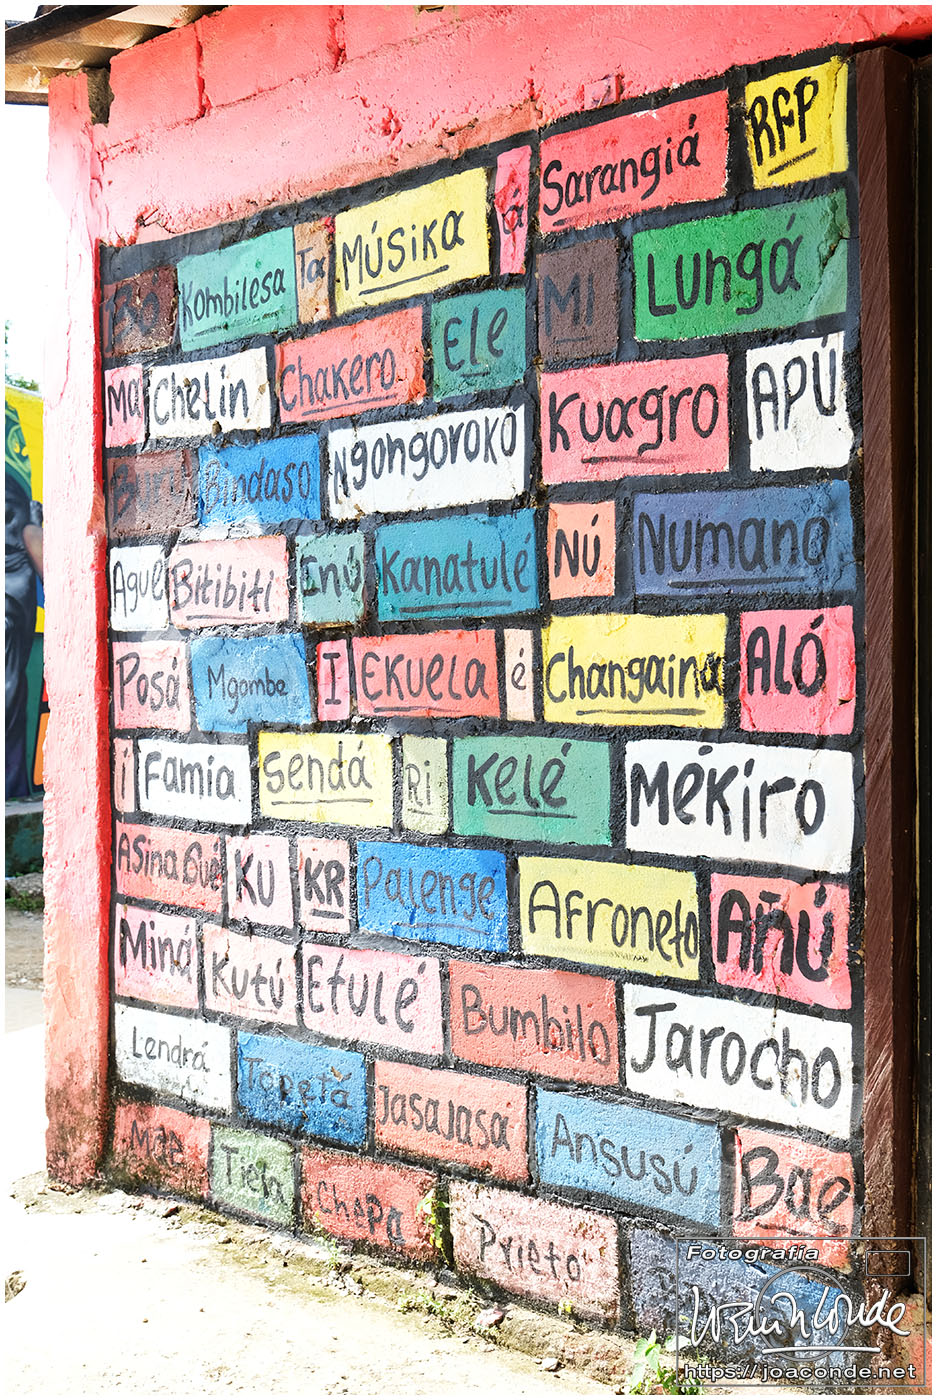 RFP
á Sarangiá
Kombilesa Ta Músika MI Lungá
Ma Chelin Chakero Ele Kuagro APÚ
Bindaso Ngongoroko
Ague Bitibiti Inú Kanatulé NÚ Numano
Posá Mgombe I EKUELA é Changaina ALÓ
í Famia sendá Ri Kelé Mékiro
ASina Qué KU KR Palenge Afroneto Añú
Miná Kutú Etulé Bumbilo Jarocho
Lendrá Toretá JasaJasá Ansusú Bae
Mae Tieła Chapa Prieto
Fotografía
https://joaconde.net